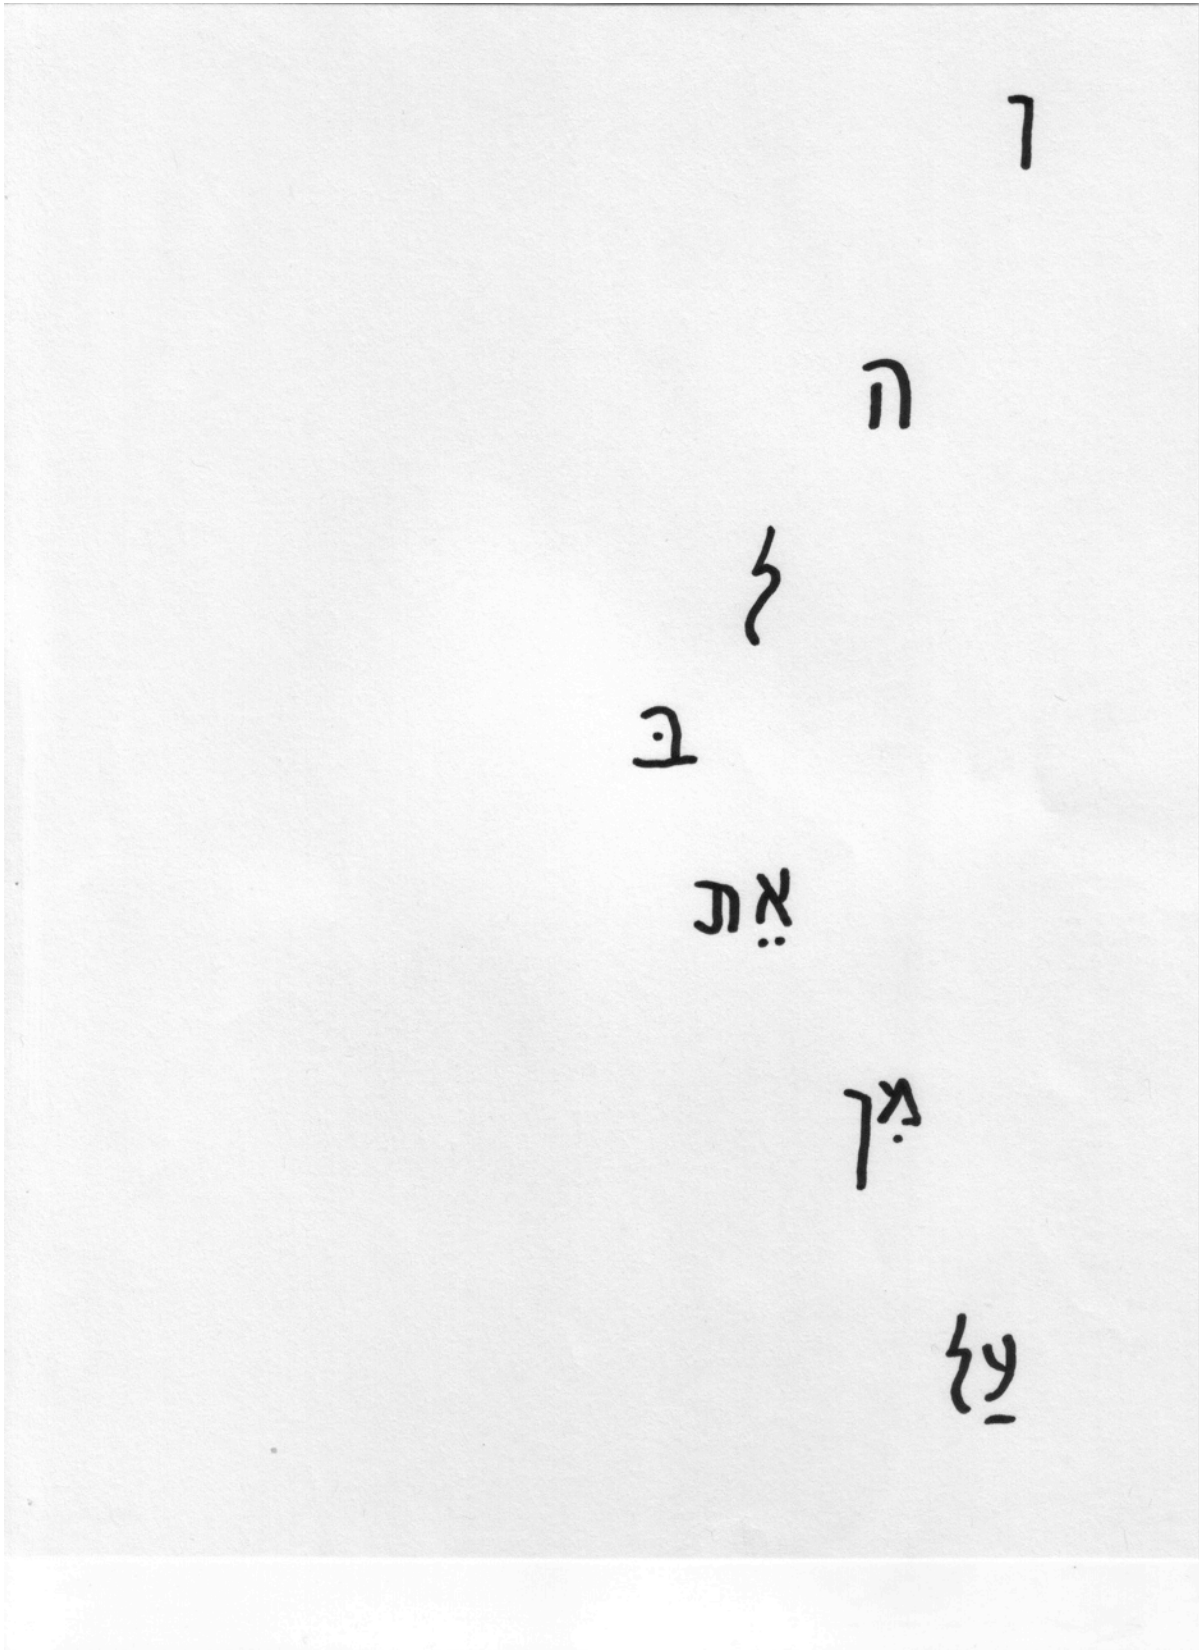 ו
ה
ל
בּ
אֵת
מִן
עַל